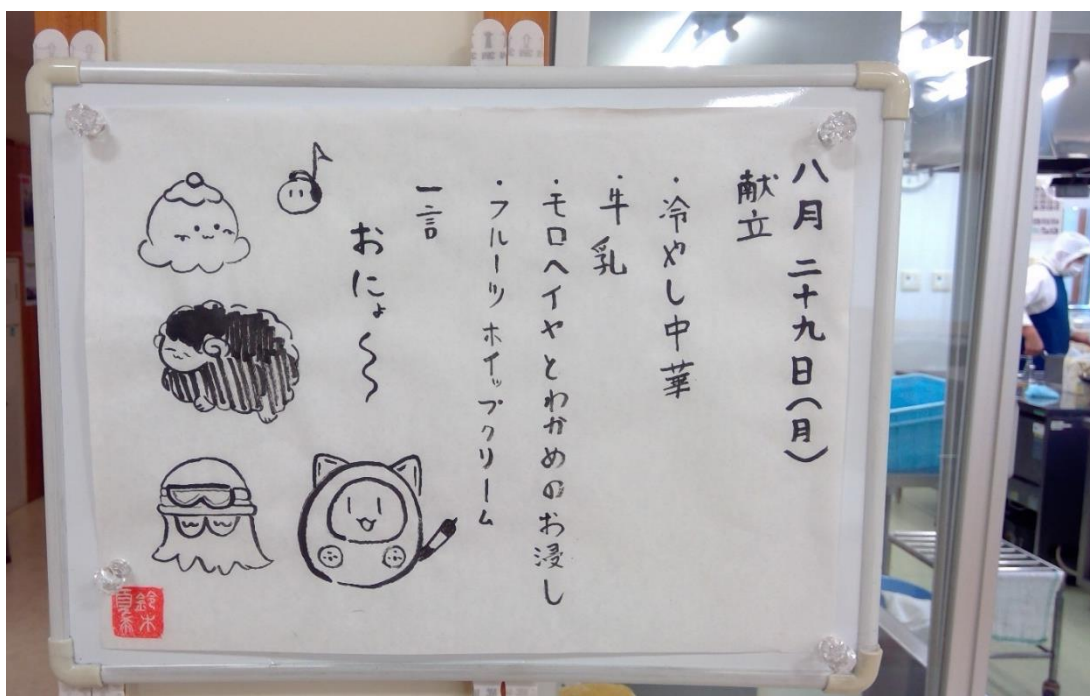 八月 二十九日(月)
献立
・冷やし中華
・牛乳
・モロヘイヤとわかめのお浸し
・フルーツ ホイップクリーム
一言
おにょ〜〜